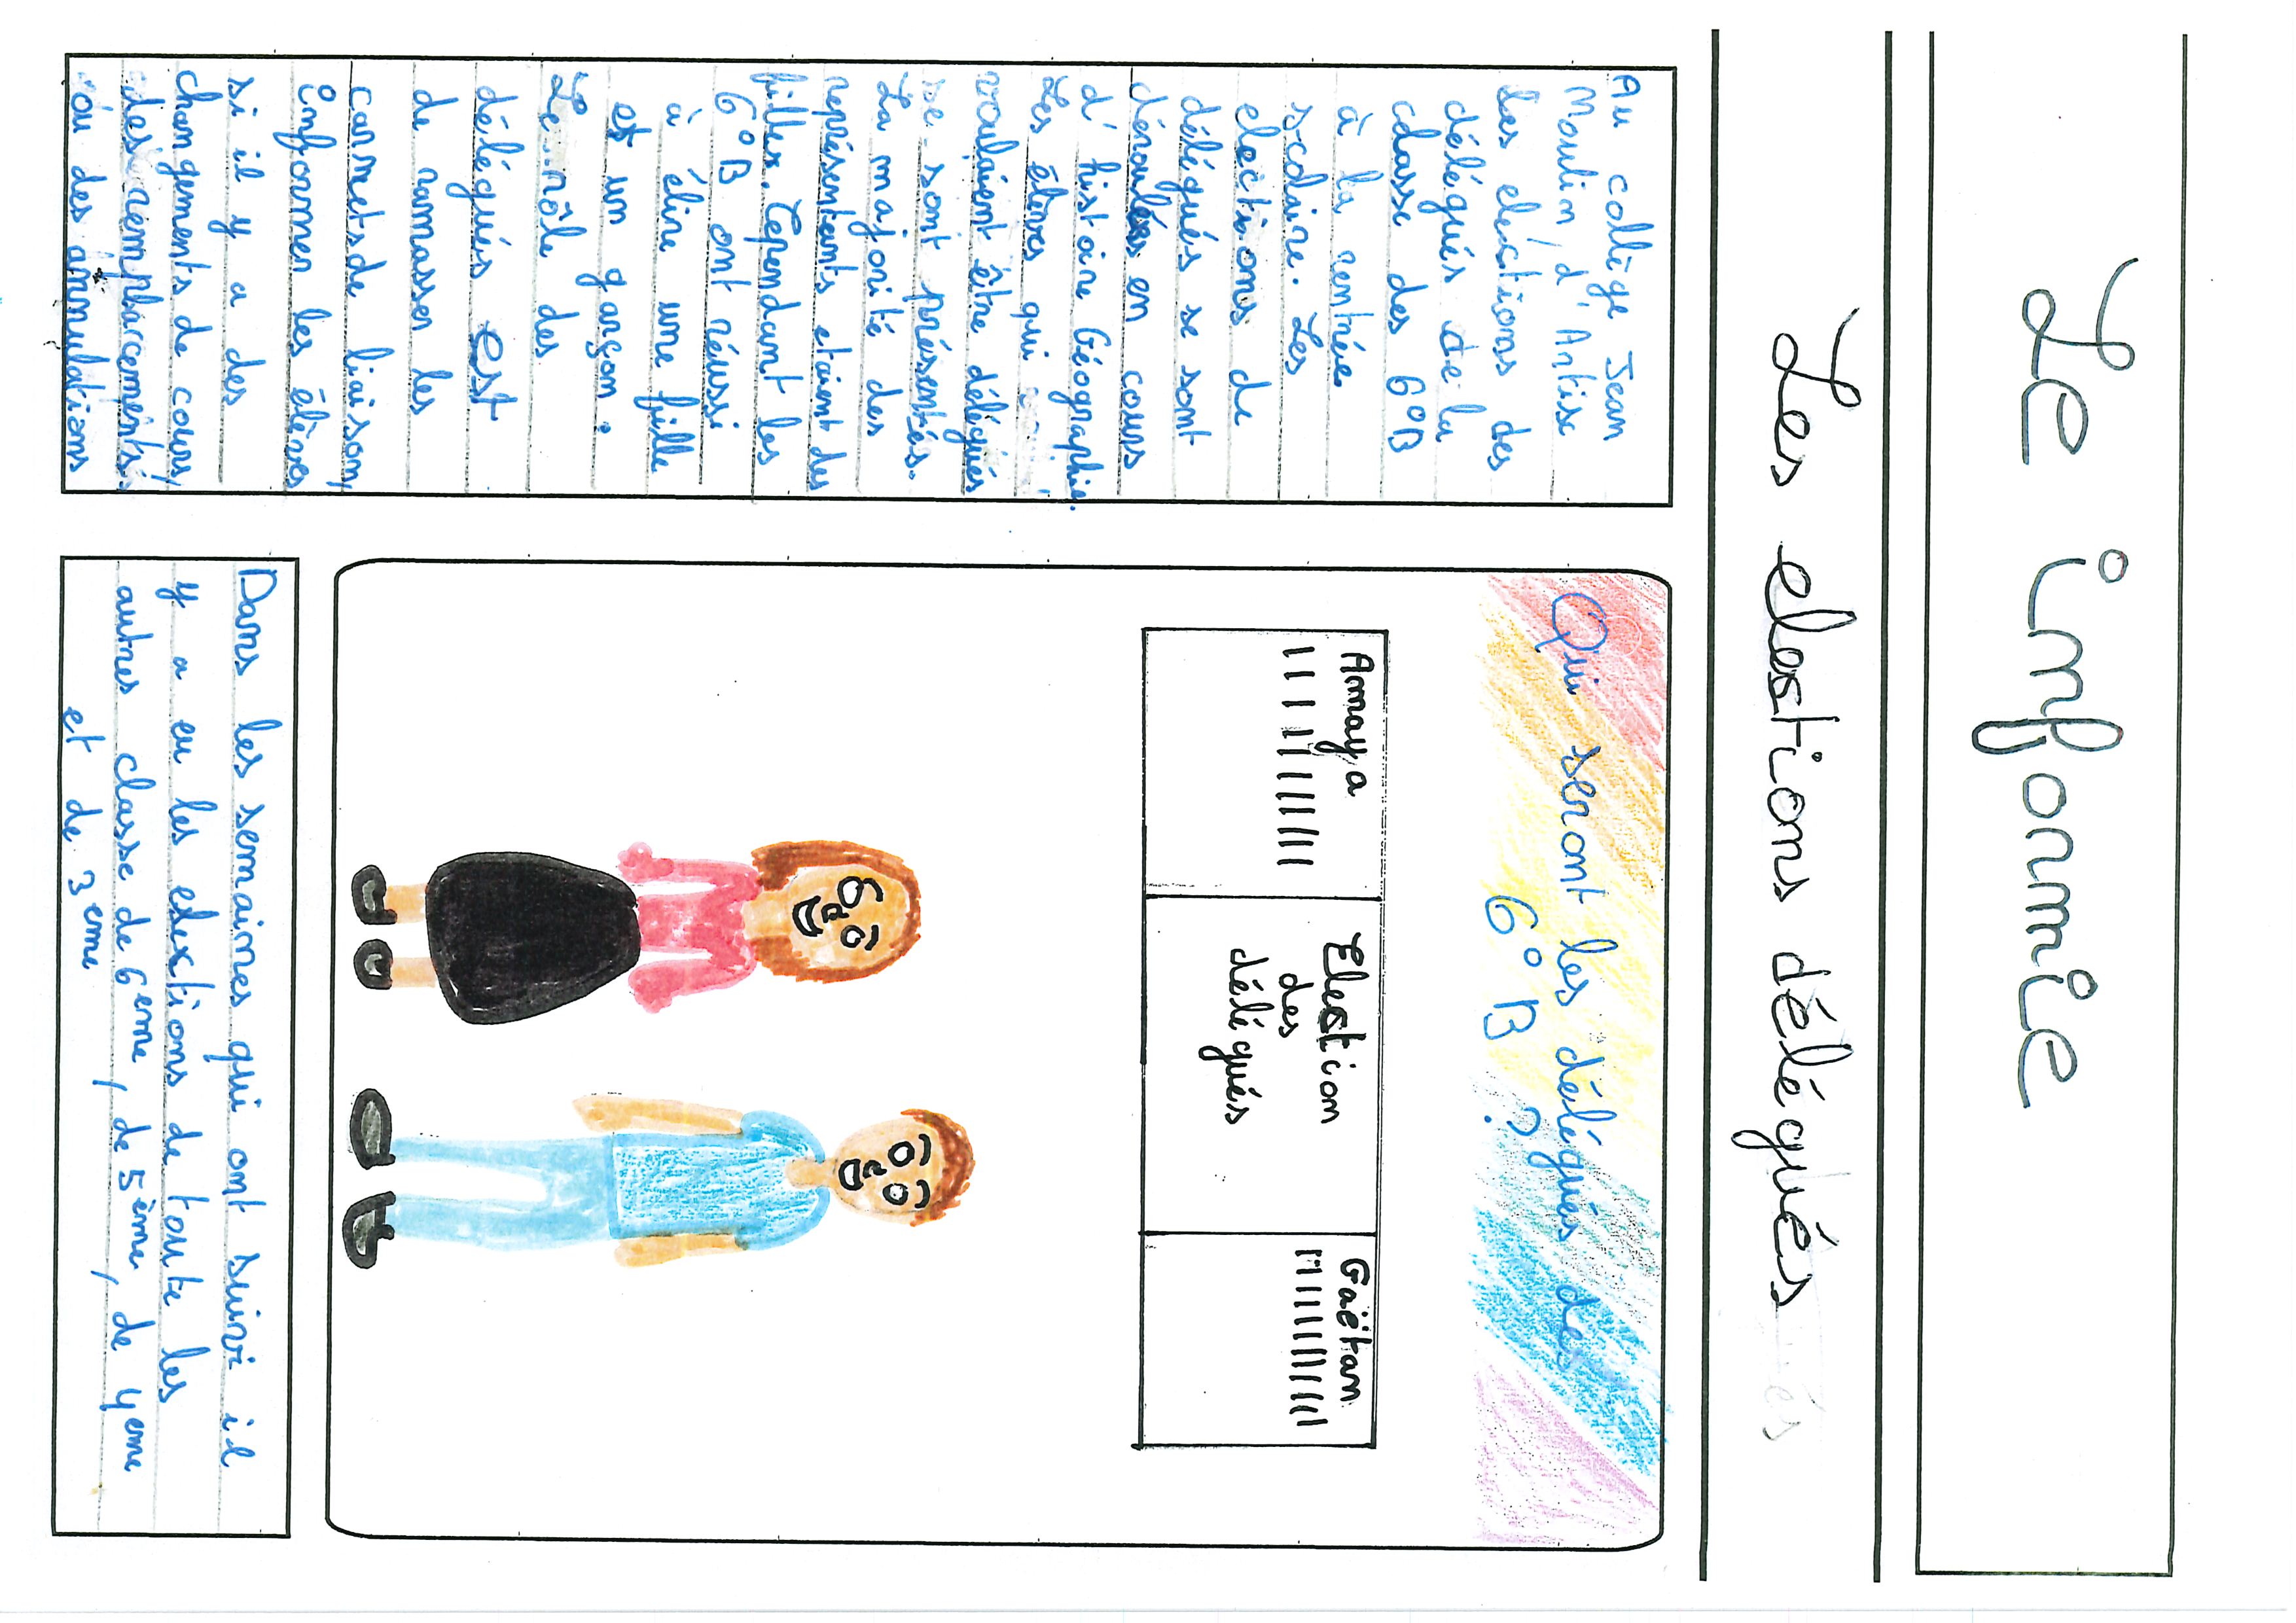 Le infonmie
Les elections délégués
Au collège Jean
Moulin d'Artix
les elections des
délégués de la
classe des 6°B
à la rentrée
scolaire. Les
elections de
délégués se sont
déroulées en cours
d'histoire Géographie.
Les élèves qui
voulaient être délégués
se sont présentés.
La majorité des
représentants etaient des
filles. Cependant les
6°B ont réussi
à élire une fille
et un garçon.
Le rôle des
délégués est
de ramasser les
carnets de liaison,
informer les élèves
si il y a des
changements de cours,
des remplacements,
ou des annulations
Qui seront les délégués des
6°B ?
Amaya
Election
des
délégués
Gaëtan
Dans les semaines qui ont suivi il
y a eu les elections de toute les
autres classe de 6eme, de 5ème, de 4eme
et de 3eme